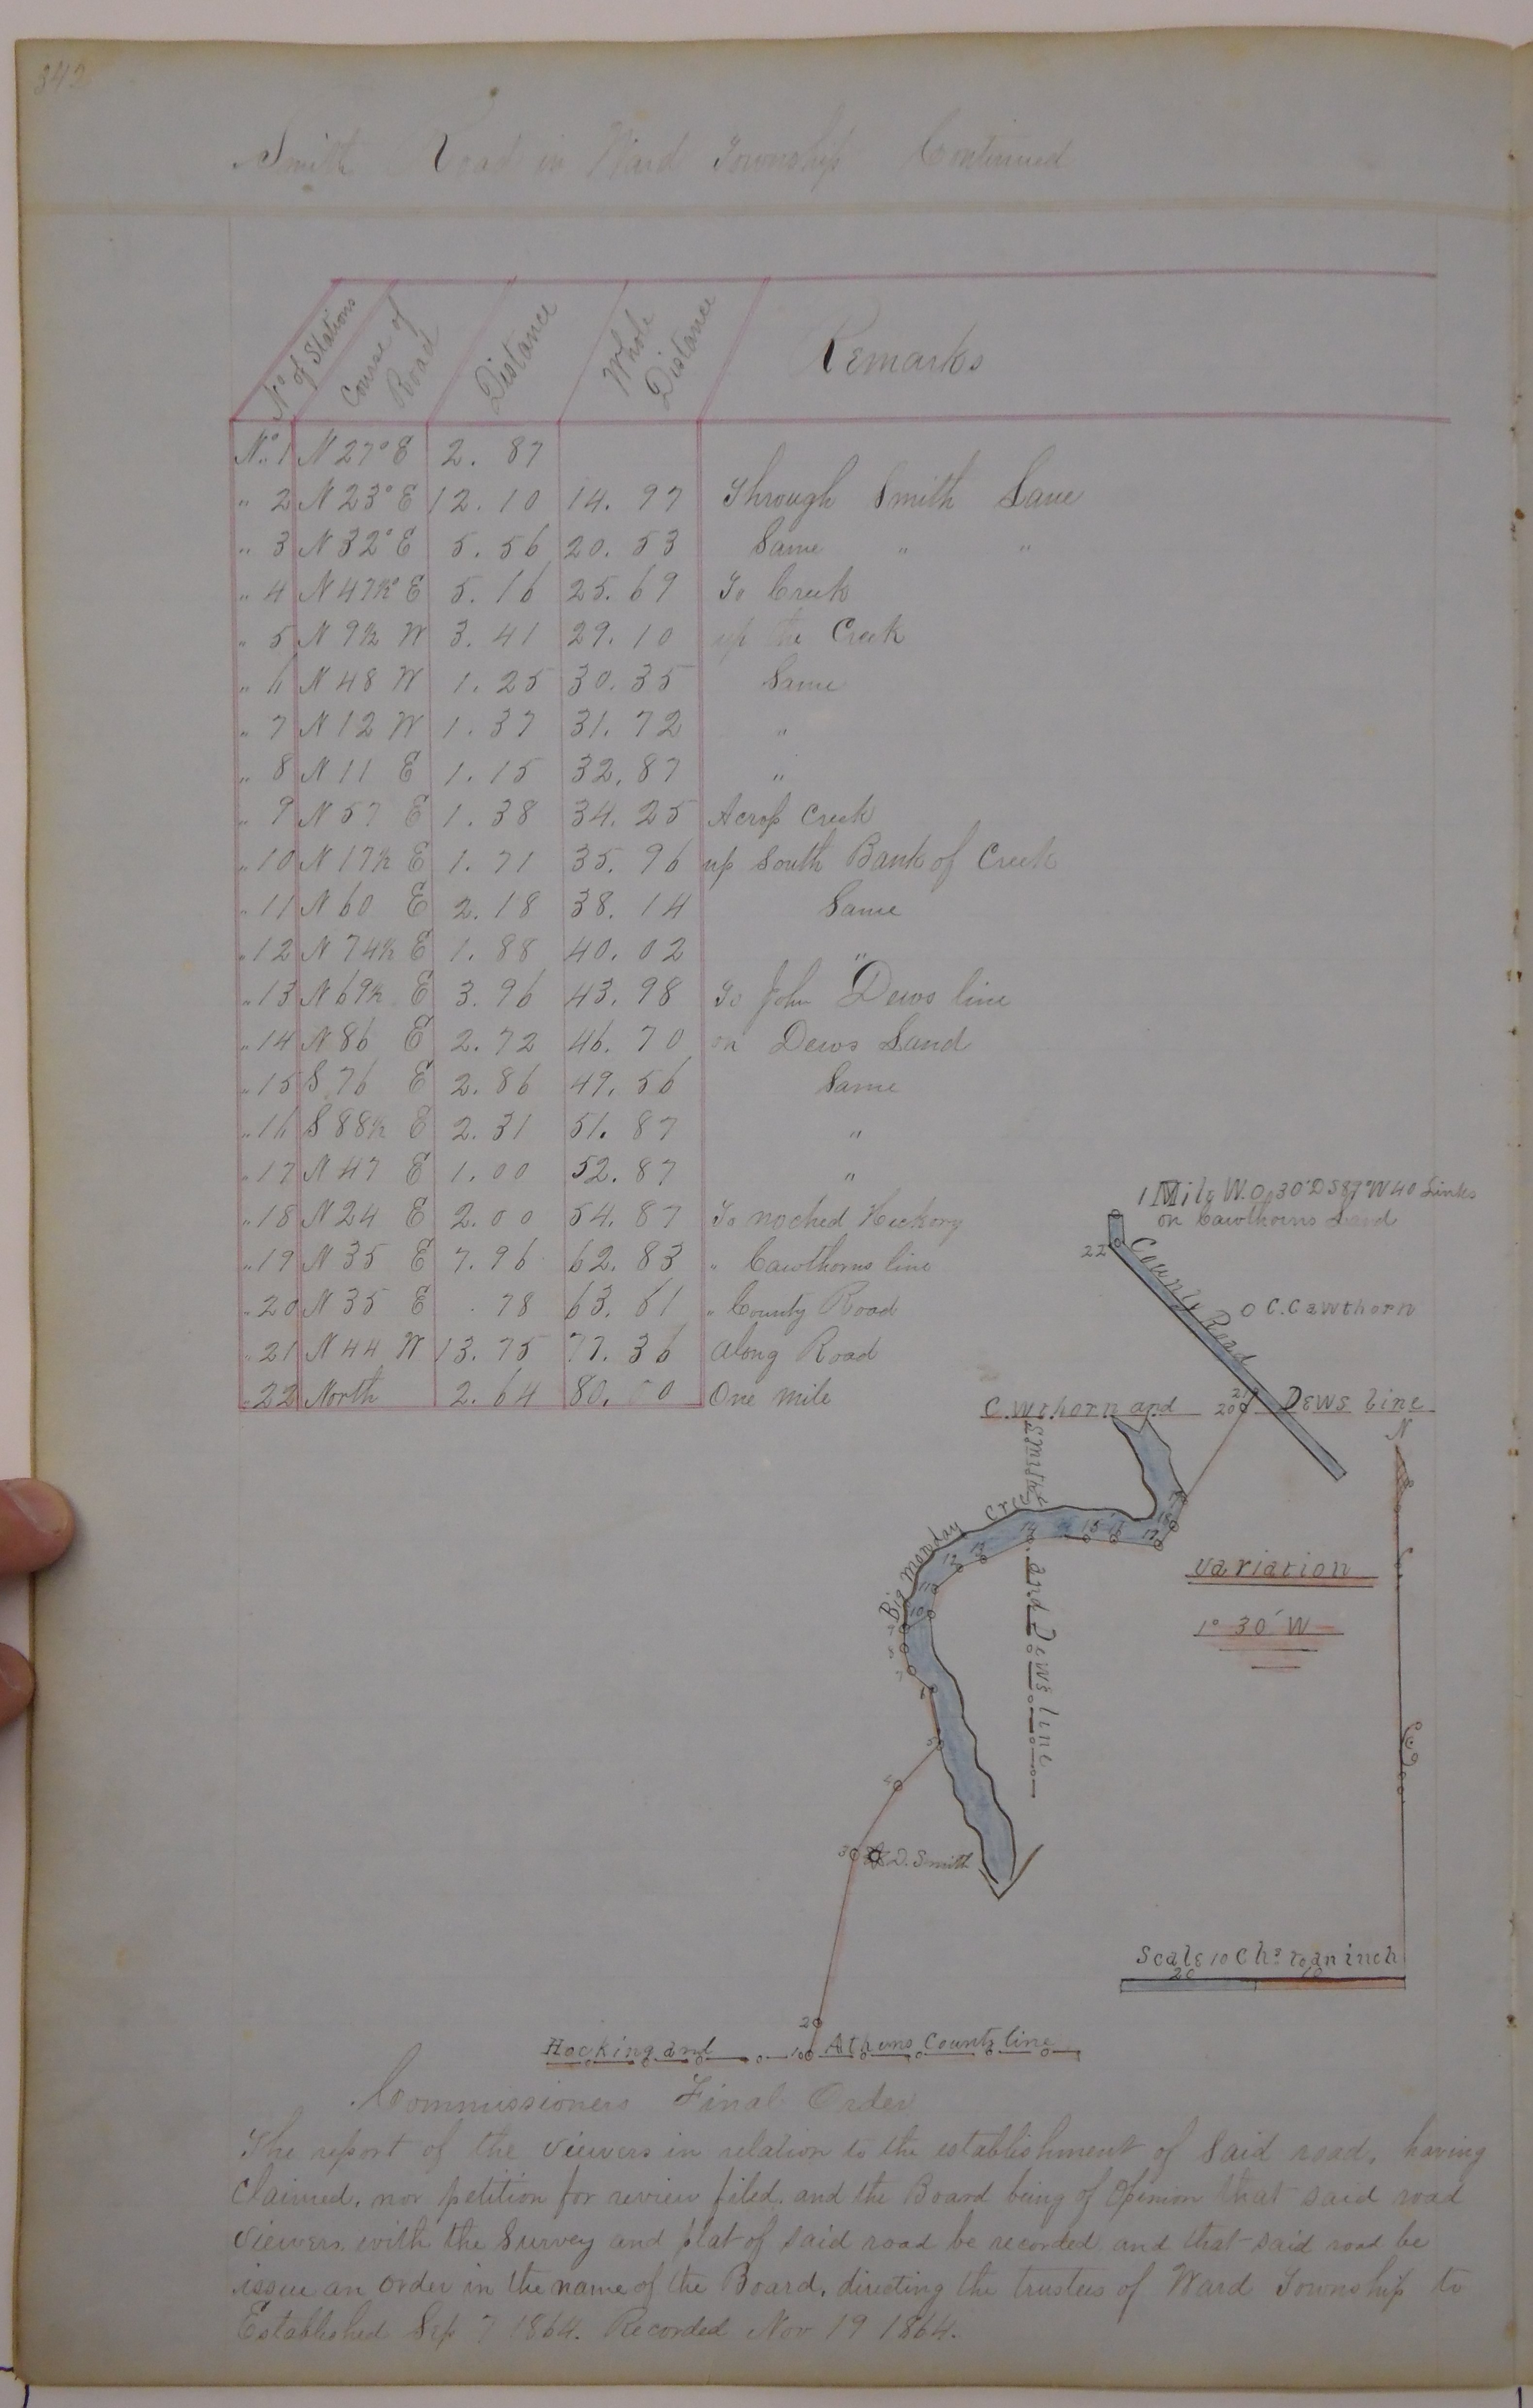 342
Smith Road in Ward Township Continued
No of Stations Course of Road Distance Whole Distance Remarks
No. 1 N 27° E 2. 87
" 2 N 23° E 12. 10 14. 97 Through Smith Lane
" 3 N 32° E 5. 56 20. 53 Same " "
" 4 N 47½° E 5. 16 25. 69 To Creek
" 5 N 9½ W 3. 41 29. 10 up the Creek
" 6 N 48 W 1. 25 30. 35 Same
" 7 N 12 W 1. 37 31. 72 "
" 8 N 11 E 1. 15 32. 87 "
" 9 N 57 E 1. 38 34. 25 Across Creek
" 10 N 17½ E 1. 71 35. 96 up South Bank of Creek
" 11 N 60 E 2. 18 38. 14 Same
" 12 N 74½ E 1. 88 40. 02 "
" 13 N 69½ E 3. 96 43. 98 To John Dews line
" 14 N 86 E 2. 72 46. 70 on Dews Land
" 15 S 76 E 2. 86 49. 56 Same
" 16 S 88½ E 2. 31 51. 87 "
" 17 N 47 E 1. 00 52. 87 "
" 18 N 24 E 2. 00 54. 87 To noched Hickory
" 19 N 35 E 7. 96 62. 83 " Cawthorns line
" 20 N 35 E . 78 63. 61 " County Road
" 21 N 44 W 13. 75 77. 36 Along Road
" 22 North 2. 64 80. 00 One mile
1 Mile W.O. 30' D S 87° W 40 Links
on Cawthorns Land
22
County Road
C. Cawthorn
21
20
C.Wthorn and Dews line
N
Smith and Dews line
Big Monday Creek
19
18
17
16
15
14
13
12
11
10
9
8
7
6
5
4
3
D. Smith
variation
1° 30' W
Scale 10 Chs to an inch
20 10
2
1
Hocking and Athens County line
Commissioners Final Order
The report of the viewers in relation to the establishment of said road, having
Claimed, nor petition for review filed, and the Board being of Opinion that said road
viewers, with the Survey and plat of said road be recorded, and that said road be
issue an order in the name of the Board, directing the trustees of Ward Township to
Established Sep 7 1864. Recorded Nov 19 1864.